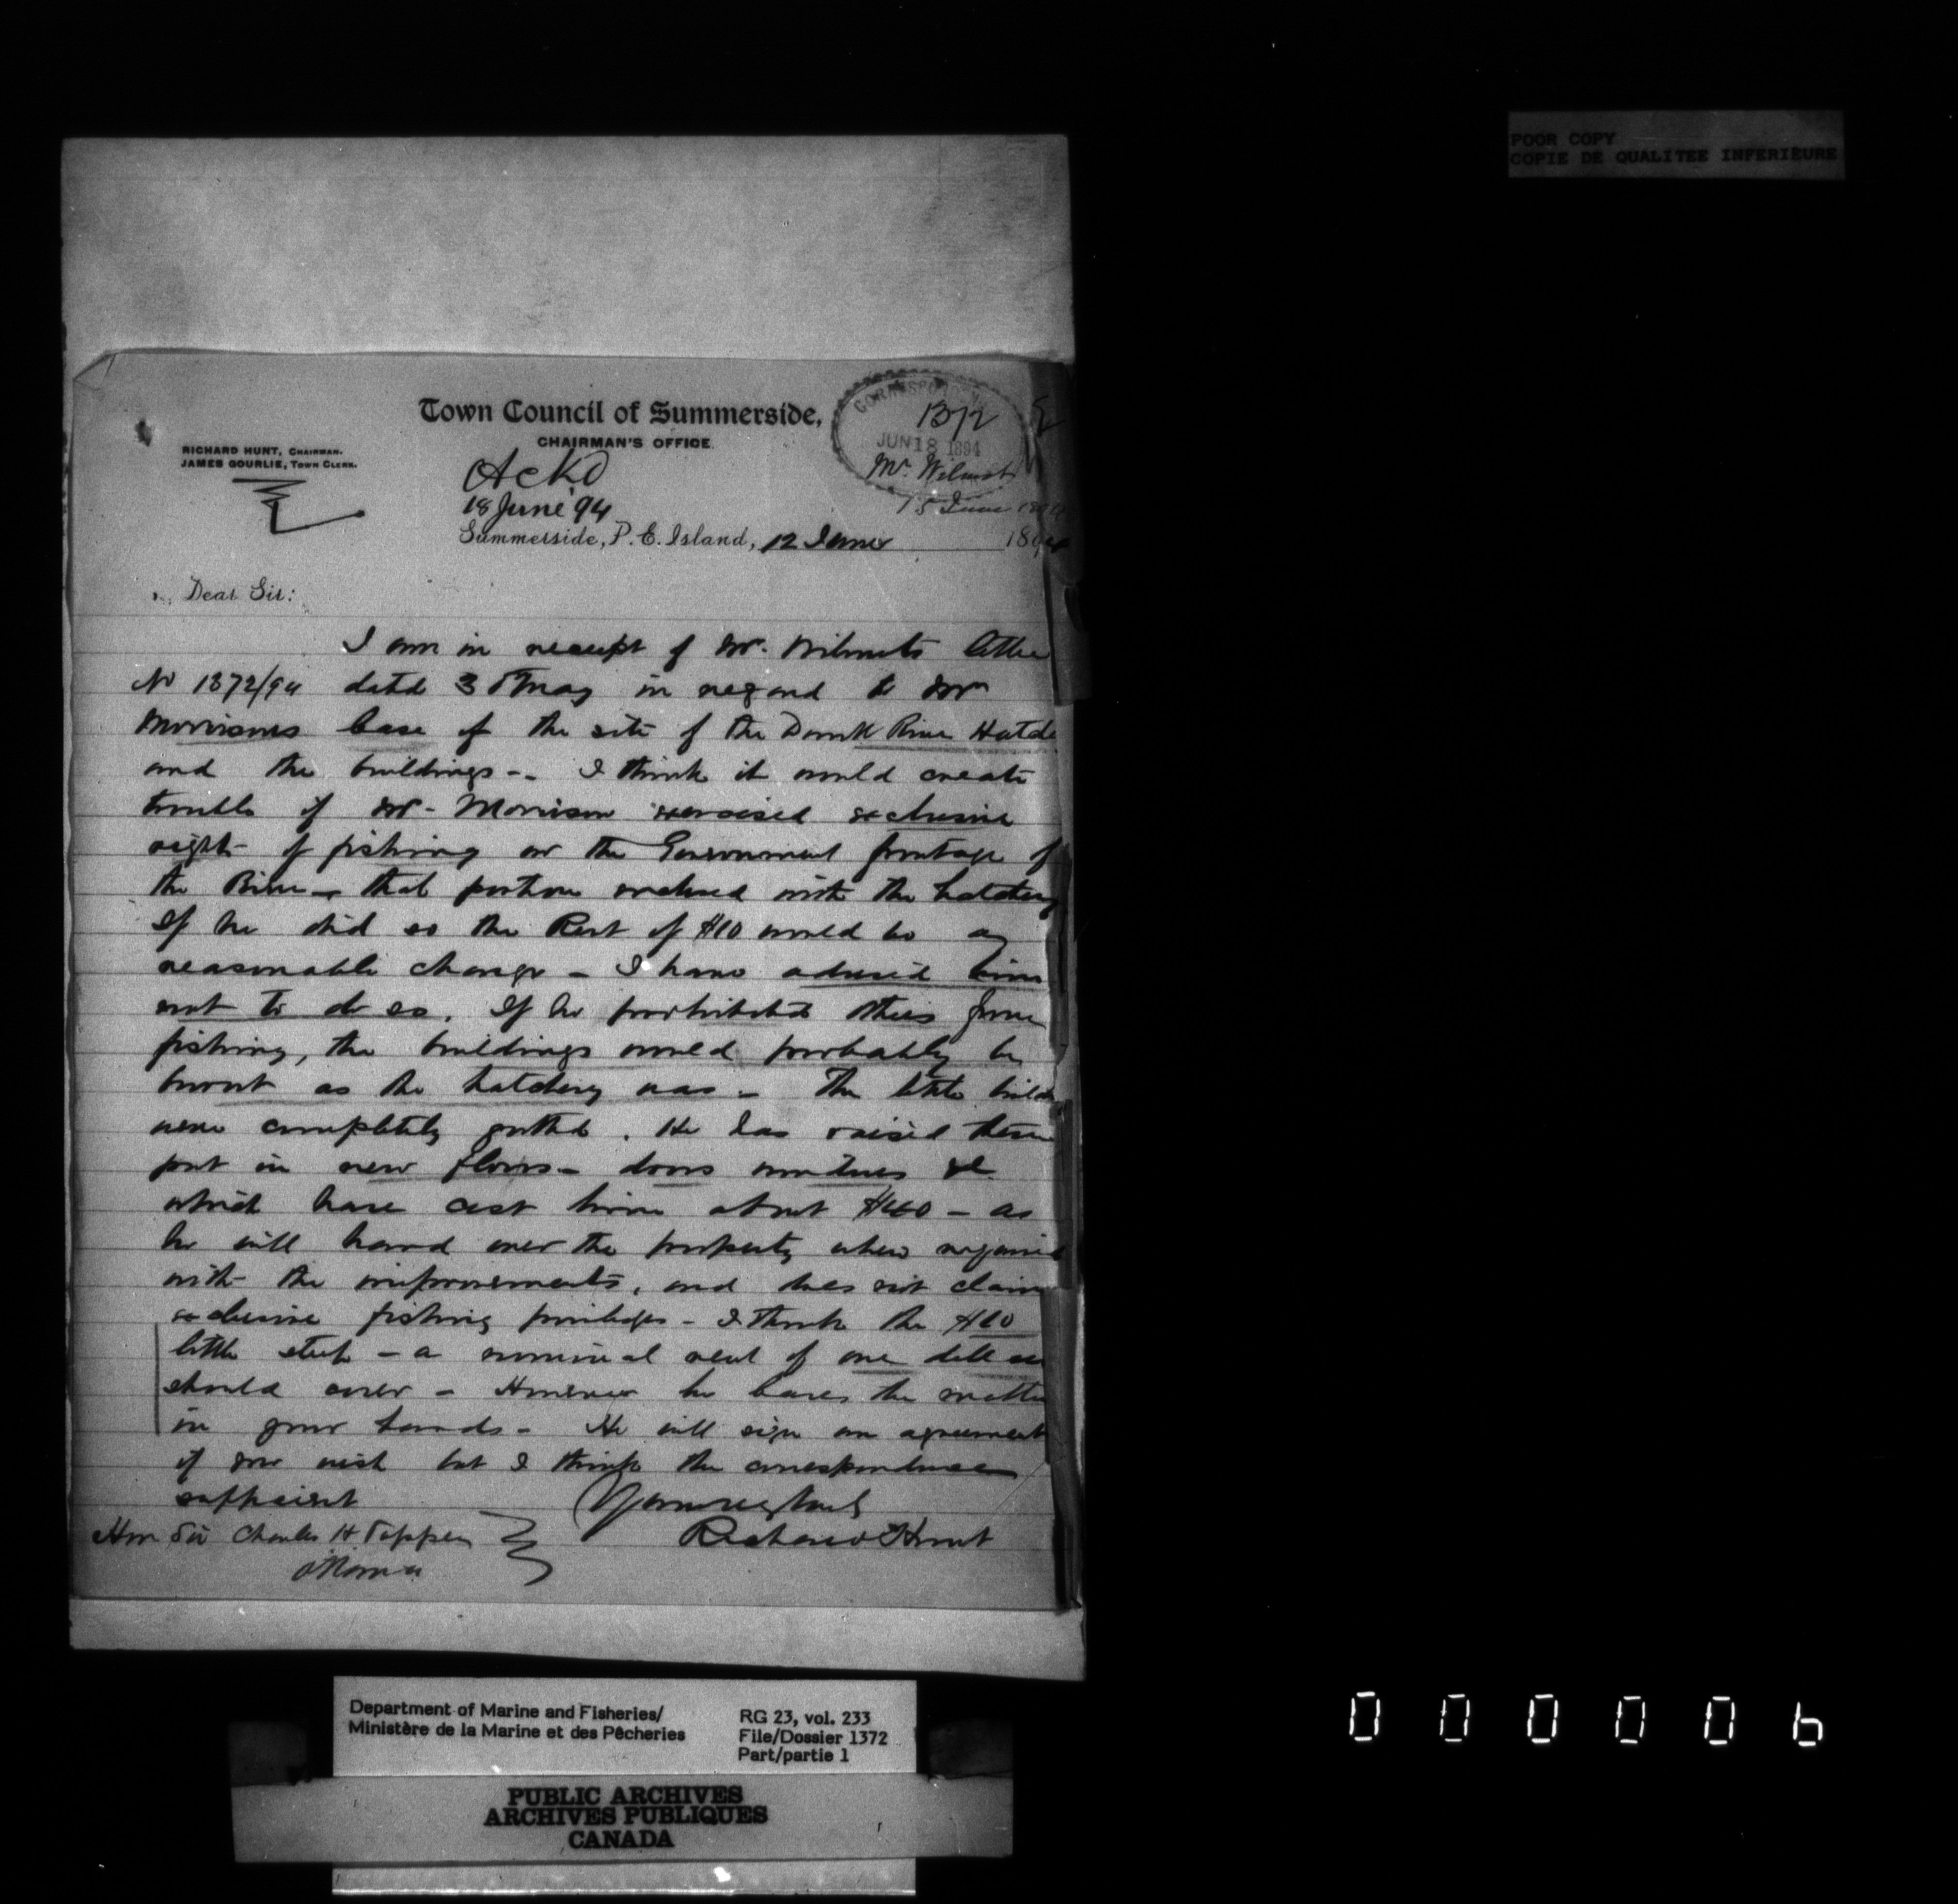 POOR COPY
COPIE DE QUALITEE INFERIEURE
Town Council of Summerside,
CHAIRMAN'S OFFICE.
RICHARD HUNT, CHAIRMAN.
JAMES GOURLIE, TOWN CLERK.
JUN 18 1894
Mr. Wilmot
15 June 1894
Ackd
18 June '94
Summerside, P. E. Island, 12 June 1894
Dear Sir:
I am in receipt of Mr. Wilmots letter
No 1372/94 datd 3 May in regard to Mr
Morrisons lease of the site of the Dunk River Hatche
and the buildings -- I think it would create
trouble if Mr - Morrison exercised exclusive
right of fishing on the Government frontage of
the River - that portion enclosed with the hatchery
If he did so the Rent of $10 would be a
reasonable charge - I have advised him
not to do so. If he prohibited others from
fishing, the buildings would probably be
burnt as the hatchery was - The little build
were completely gutted. He has raised them
put in new floors - doors windows &c
which have cost him about $40 - as
he will hand over the property when required
with the improvements, and does not claim
exclusive fishing privileges - I think the $10
little steep - a nominal rent of one dollar
should cover - However he leaves the matter
in your hands - He will sign an agreement
if you wish but I think the correspondence
sufficient
Yours respectfully
Hon Sir Charles H Tupper
Richard Hunt
Ottawa
Department of Marine and Fisheries/
Ministère de la Marine et des Pêcheries
RG 23, vol. 233
File/Dossier 1372
Part/partie 1
PUBLIC ARCHIVES
ARCHIVES PUBLIQUES
CANADA
000006